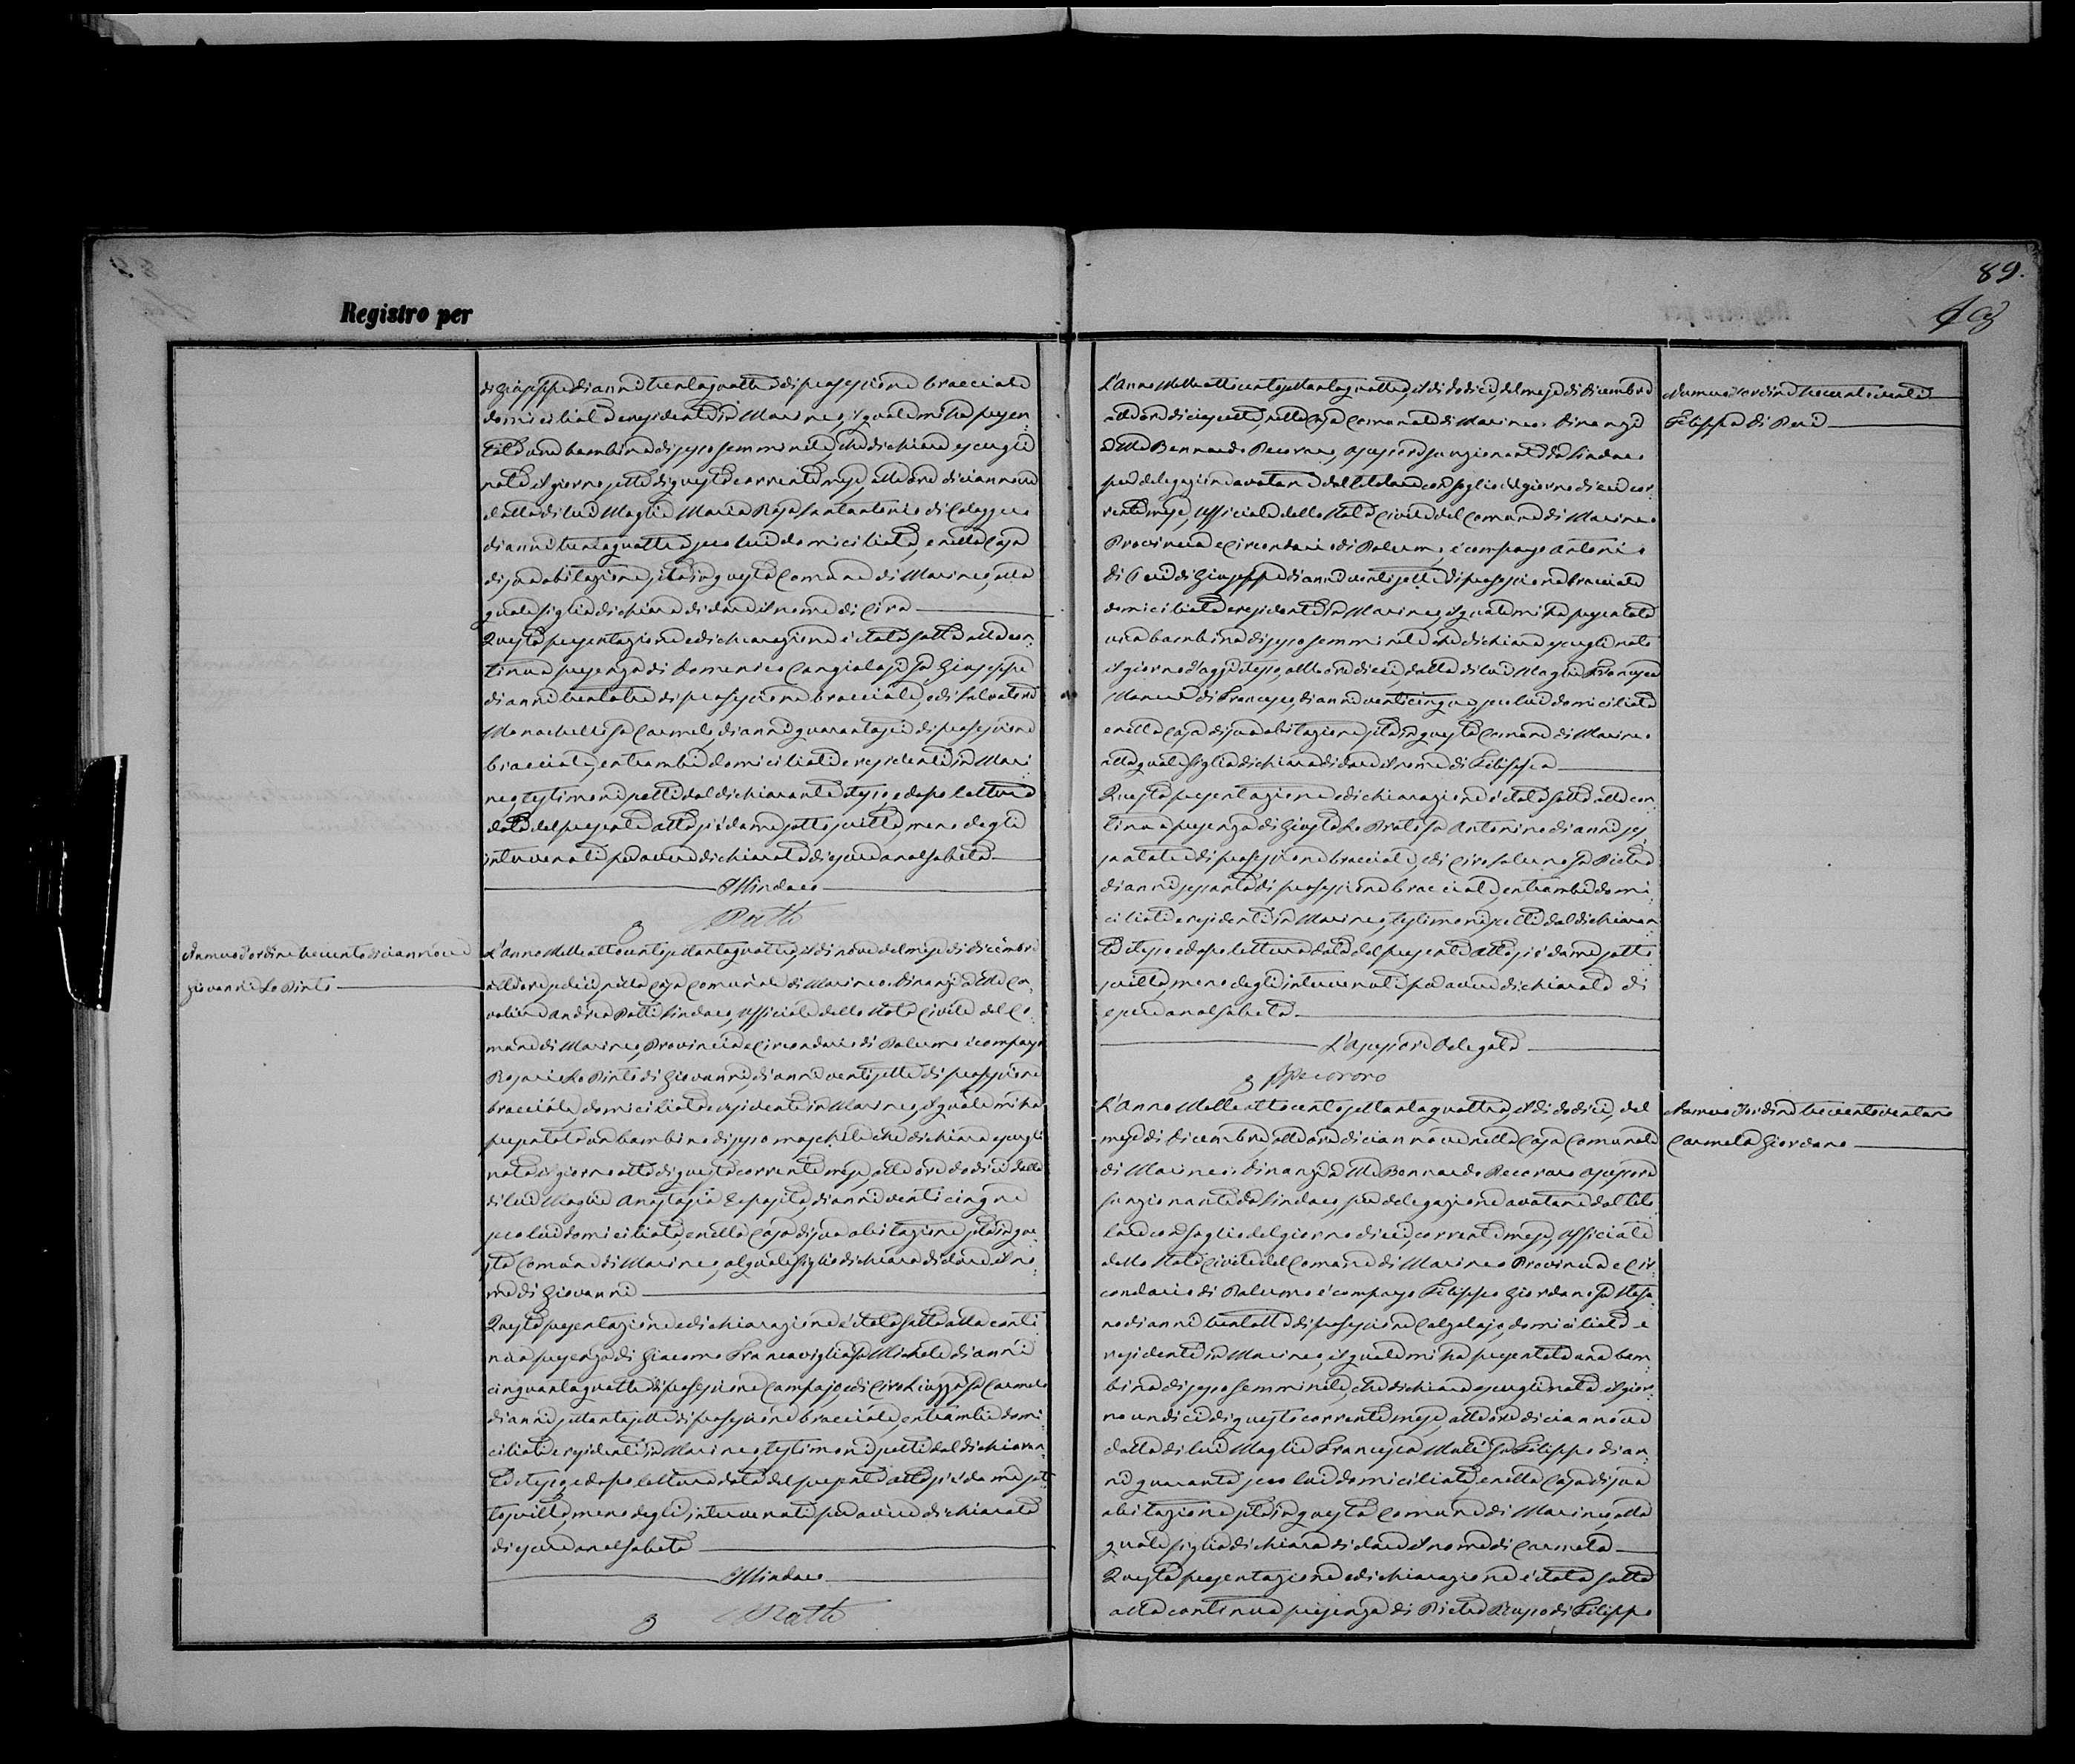 89.
Registro per
di Giuseppe di anni trentaquattro di professione bracciale
domiciliato e residente in Marineo, il quale mi ha presen:
tato una bambina di sesso femminile, che dichiara essergli
nata il giorno sette di questo corrente mese, alle ore diciannove
dalla di lui Moglie Maria Rosa Santantonio di Calogero
di anni trentaquattro seco lui domiciliata, e nella Casa
di sua abitazione, sita in questo Comune di Marineo, alla
quale figlia dichiara di dare il nome di Cira
Questa presentazione e dichiarazione è stata fatta alla con:
tinua presenza di Domenico Cangialosi fu Giuseppe
di anni trentatre di professione bracciale, e di Salvatore
Monachelli fu Carmelo, di anni quarantasei di professione
bracciale, entrambi domiciliati e residenti in Mari:
neo, testimoni scelti dal dichiarante stesso, e dopo lettura
data del presente atto si è da me sottoscritto, meno degli
intervenuti per avere dichiarato di essere analfabeti
Il Sindaco
Patti
Numero d'ordine trecentodiciannove
Giovanni Lo Pinto
L'anno Milleottocentosettantaquattro, il dì nove del mese di Dicembre
alle ore sedici, nella Casa Comunale di Marineo. Dinanzi a Me Ca:
valiere Andrea Patti Sindaco, Ufficiale dello Stato Civile del Co:
mune di Marineo, Provincia e Circondario di Palermo è comparso
Rosario Lo Pinto di Giovanni, di anni ventisette di professione
bracciale, domiciliato e residente in Marineo, il quale mi ha
presentato un bambino di sesso maschile che dichiara essergli
nato il giorno otto di questo corrente mese, alle ore dodici dalla
di lui Moglie Anastasia Esposito, di anni venticinque
seco lui domiciliata, e nella Casa di sua abitazione sita in que:
sto Comune di Marineo, al quale figlio dichiara di dare il no:
me di Giovanni
Questa presentazione e dichiarazione è stata fatta alla conti:
nua presenza di Giacomo Francaviglia fu Michele di anni
cinquantaquattro di professione Campajo, e di Ciro Liuzza fu Carmelo
di anni settantasette di professione bracciale, entrambi domi:
ciliati e residenti in Marineo, testimoni scelti dal dichiaran:
te stesso, e dopo lettura data del presente atto si è da me sot:
toscritto, meno degli intervenuti per avere dichiarato
di essere analfabeti
Il Sindaco
Patti
L'anno Milleottocentosettantaquattro, il dì dodici, del mese di Dicembre
alle ore diciassette, nella Casa Comunale di Marineo. Dinanzi
a Me Bennardo Pecoraro, Assessore funzionante da Sindaco
per delegazione avutane dal titolare con foglio del giorno dieci cor:
rente mese, Ufficiale dello Stato Civile del Comune di Marineo
Provincia e Circondario di Palermo, è comparso Antonio
di Peri di Giuseppe di anni ventisette di professione bracciale
domiciliato e residente in Marineo, il quale mi ha presentato
una bambina di sesso femminile che dichiara essergli nata
il giorno d'oggi stesso, alle ore dieci, dalla di lui Moglie Francesca
di Francesco, di anni venticinque, seco lui domiciliata
e nella Casa di sua abitazione sita in questo Comune di Marineo
alla quale figlia dichiara di dare il nome di Filippa
Questa presentazione e dichiarazione è stata fatta alla con:
tinua presenza di Giusto Lo Proto fu Antonino di anni ses:
santatre di professione bracciale, e di Ciro Salerno fu Pietro
di anni sessanta di professione bracciale, entrambi domi:
ciliati e residenti in Marineo, testimoni scelti dal dichiaran:
te stesso e dopo lettura data del presente atto si è da me sotto:
scritto, meno degli intervenuti per avere dichiarato di
essere analfabeti
L'Assessore Delegato
B Pecoraro
Numero d'ordine trecentoventi
Filippa di Peri
L'anno Milleottocentosettantaquattro, il dì dodici, del
mese di Dicembre, alle ore diciannove nella Casa Comunale
di Marineo. Dinanzi a Me Bennardo Pecoraro Assessore
funzionante da Sindaco, per delegazione avutane dal tito:
lare con foglio del giorno dieci, corrente mese, Ufficiale
dello Stato Civile del Comune di Marineo Provincia e Cir:
condario di Palermo è comparso Filippo Giordano fu Stefa:
no di anni trentotto di professione Calzolajo, domiciliato e
residente in Marineo, il quale mi ha presentato una bam:
bina di sesso femminile, che dichiara essergli nata il gior:
no undici di questo corrente mese, alle ore diciannove
dalla di lui Moglie Francesca Mulè fu Filippo di an:
ni quaranta seco lui domiciliata, e nella Casa di sua
abitazione sita in questo Comune di Marineo, alla
quale figlia dichiara di dare il nome di Carmela
Questa presentazione e dichiarazione è stata fatta
alla continua presenza di Pietro di Filippo
Numero d'ordine trecentoventuno
Carmela Giordano